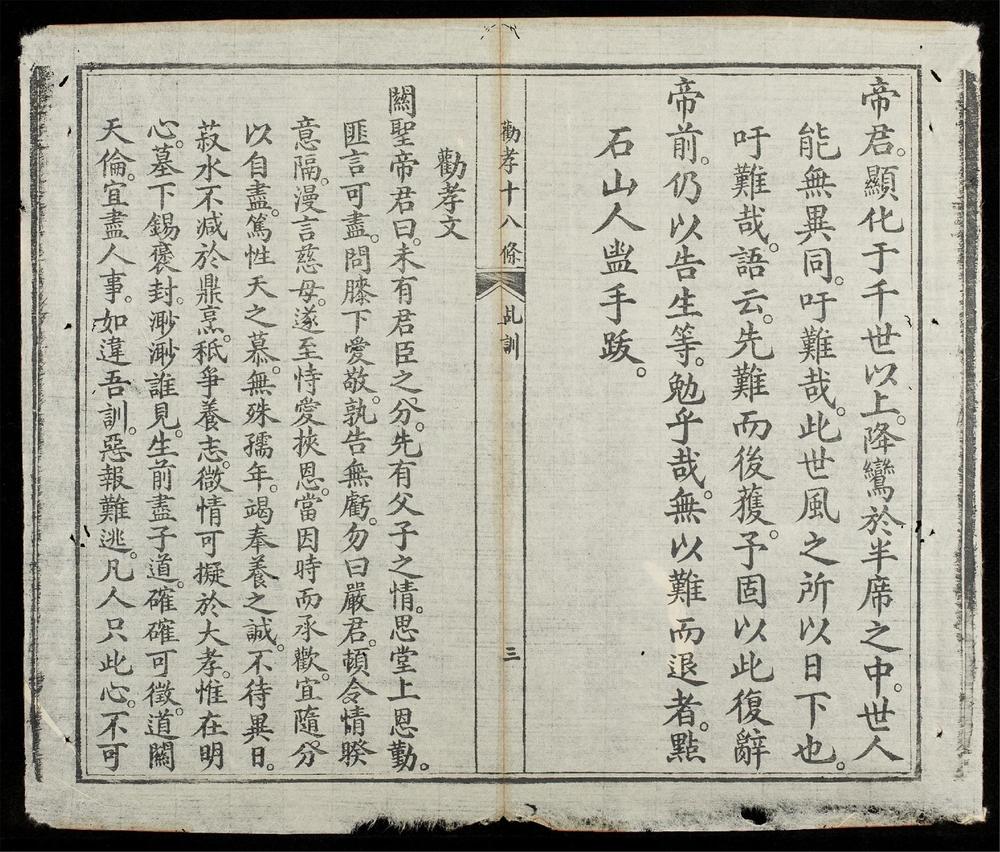 帝君。顯化于千世以上。降鸞於半席之中。世人
能無異同。吁難哉。此世風之所以日下也。
吁難哉。語云。先難而後獲。予固以此復辭
帝前。仍以告生等。勉乎哉。無以難而退者。點
石山人盥手跋。
勸孝十八條 乩訓 三
勸孝文
關聖帝君曰。未有君臣之分。先有父子之情。思堂上恩勤。
匪言可盡。問膝下愛敬。孰告無虧。勿曰嚴君。頓令情暌
意隔。漫言慈母。遂至恃愛挾恩。當因時而承歡。宜隨分
以自盡。篤性天之慕。無殊孺年。竭奉養之誠。不待異日。
菽水不减於鼎烹。秪爭養志。微情可擬於大孝。惟在明
心。墓下錫褒封。渺渺誰見。生前盡子道。確確可徵。道關
天倫。宜盡人事。如違吾訓。惡報難逃。凡人只此心。不可